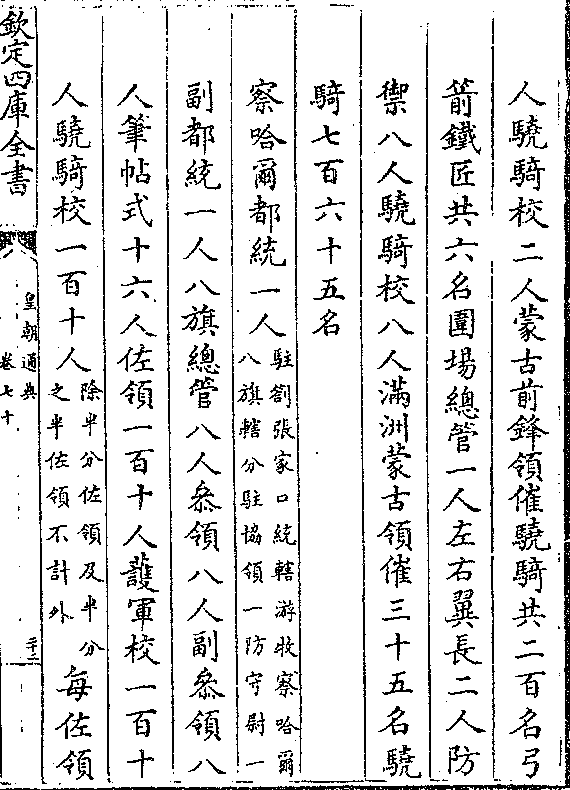 人驍騎校二人蒙古前鋒領催驍騎共二百名弓
箭鐵匠共六名圍場總管一人左右翼長二人防
禦八人驍騎校八人滿洲蒙古領催三十五名驍
騎七百六十五名
察哈爾都統一人駐劄張家口統轄游牧察哈爾
八旗轄分駐協領一防守尉一
副都統一人八旗總管八人叅領八人副叅領八
人筆帖式十六人佐領一百十人䕶軍校一百十
人驍騎校一百十人除半分佐領及半分
之半佐領不計外每佐領
欽定四庫全書
皇朝通典
卷七十
二十二